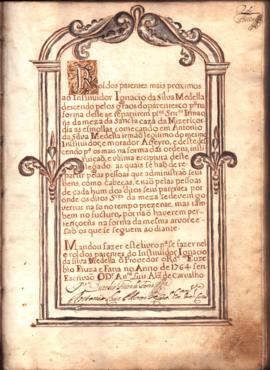 Rol dos parentes mais proximos
ao Instituidor Ignacio da Silva Medella
descendo pelos graos do parentesco pª na
forma deste se repartirem plos Snres Irmaõs
da meza da Sancta caza da Mizericor
dia as esmollas, começando em Antonio
da Silva Medella irmaõ segundo do mesmo
Instituidor, e morador
cendo pª os mais na forma da ordem, insti
tuicaõ, e ultima escriptura deste
legado as quais se haõ de re
partir pelas pessoas que administraõ seus
bens, como cabeças, e naõ pelas pessoas
de cada hum dos ditos seus parentes por
onde os ditos Snres da meza se devem go
vernar naõ so no tempo prezente, mas tam
bem no futuro, por não haverem per
tenções na forma da mesma arvore e
saõ os que se seguem ao diante.
Mandou fazer este livro pª se fazer nel
e rol dos parentes do Instituidor Ignacio
da Silva Medella o Provedor o Rdo Euze
bio no Anno de 1764 sen
Escrivaõ O Dr Anto Luis Alz de Carvalho